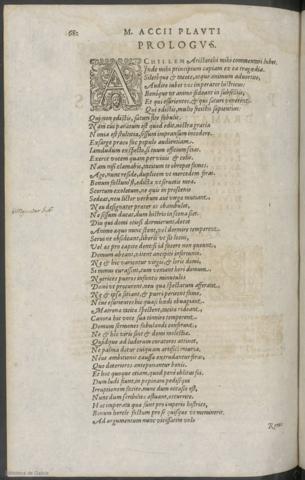 682
M. ACCII PLAVTI
PROLOGVS.
ACHILLEM Aristarchi mihi commentari lubet.
Inde mihi principium capiam ex ea tragœdia.
Sileteque & tacete, atque animum aduortite.
Audire iubet vos imperator histricus:
Bonoque vt animo sedeant in subselliis,
Et qui esurientes, & qui saturi venerint.
Qui edistis, multo fecistis sapientius:
Qui non edistis, saturi fite fabulis.
Nam cui paratum est quod edit, nostra gratia
Nimia est stultitia, sessum impransum incedere.
Exsurge præco: fac populo audientiam.
Iamdudum exspecto, si tuum officium scias.
Exerce vocem quam per viuis & colis.
Nam nisi clamabis, tacitum te obrepet fames.
Age, nunc reside, duplicem vt mercedem feras.
Bonum factum est, edicta vt seruetis mea.
Scortum exoletum, ne quis in proscenio
Sedeat, neu lictor verbum aut virgæ mutiant.
Neu designator præter os obambulet,
Neu sessum ducat, dum histrio in scena siet.
Diu qui domi otiosi dormierunt, decet
Animo æquo nunc stent, vel dormire temperent.
Serui ne obsideant, liberis vt sit locus,
Vel æs pro capite dent: si id facere non queunt,
Domum abeant, vitent ancipiti infortunio.
Ne & hic varientur virgis, & loris domi,
Si minus curassint, cum veniant heri domum.
Nutrices pueros infantis minutulos
Domi vt procurent, neu quæ spectatum afferat.
Ne & ipsæ sitiant, & pueri pereant fame,
Neue esurientes hic quasi hœdi obuagiant.
Matronæ tacitæ spectent, tacitæ rideant.
Canora hic voce sua tinnire temperent.
Domum sermones fabulandi conferant,
Ne & hic viris sint & domi molestiæ.
Quodque ad ludorum curatores attinet,
Ne palma detur cuiquam artifici iniuria,
Neue ambitionis causa extrudantur foras,
Quo deteriores anteponantur bonis.
Et hoc quoque etiam, quod pene oblitus sui,
Dum ludi fiunt, in popinam pedisequi
Irruptionem facite, nunc dum occasio est,
Nunc dum scribilitæ æstuant, occurrite.
Hæc imperata quæ sunt pro imperio histrico,
Bonum hercle factum pro se quisque vt meminerit.
Ad argumentum nunc vicissatim volo
Rem-